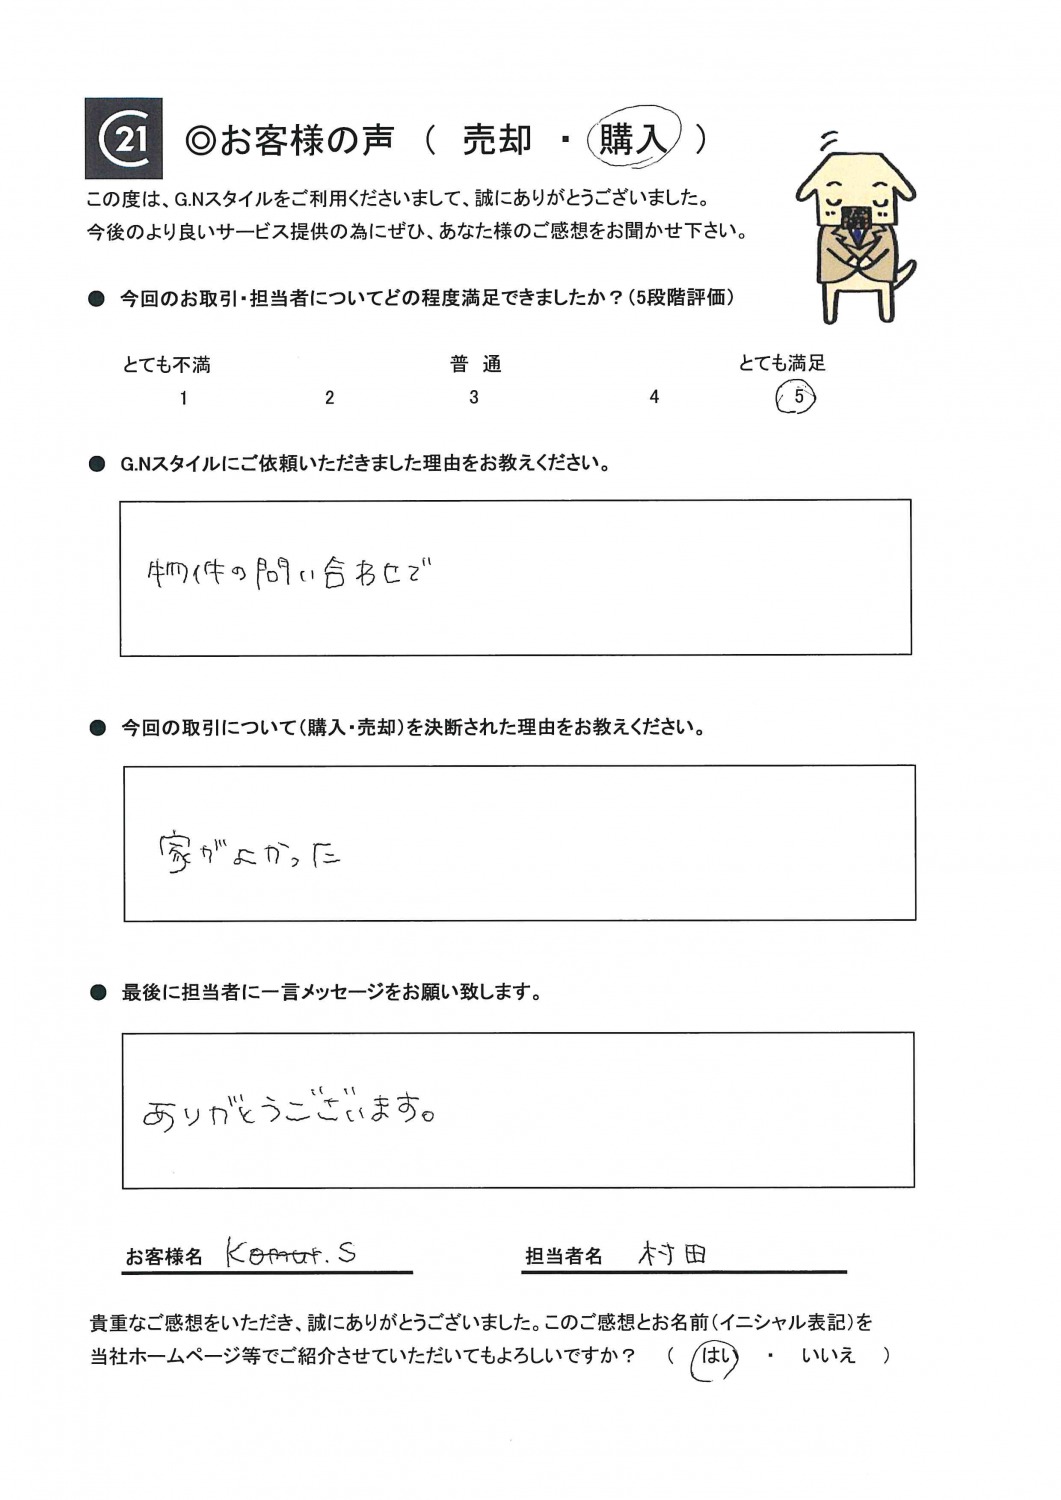 C21 ◎お客様の声 ( 売却 ・ 購入 )
この度は、G.Nスタイルをご利用くださいまして、誠にありがとうございました。
今後のより良いサービス提供の為にぜひ、あなた様のご感想をお聞かせ下さい。
● 今回のお取引・担当者についてどの程度満足できましたか？（5段階評価）
とても不満 普 通 とても満足
1 2 3 4 5
● G.Nスタイルにご依頼いただきました理由をお教えください。
物件の問い合わせで
● 今回の取引について（購入・売却）を決断された理由をお教えください。
家がよかった
● 最後に担当者に一言メッセージをお願い致します。
ありがとうございます。
お客様名 K S 担当者名 村田
貴重なご感想をいただき、誠にありがとうございました。このご感想とお名前（イニシャル表記）を
当社ホームページ等でご紹介させていただいてもよろしいですか？ ( はい ・ いいえ )